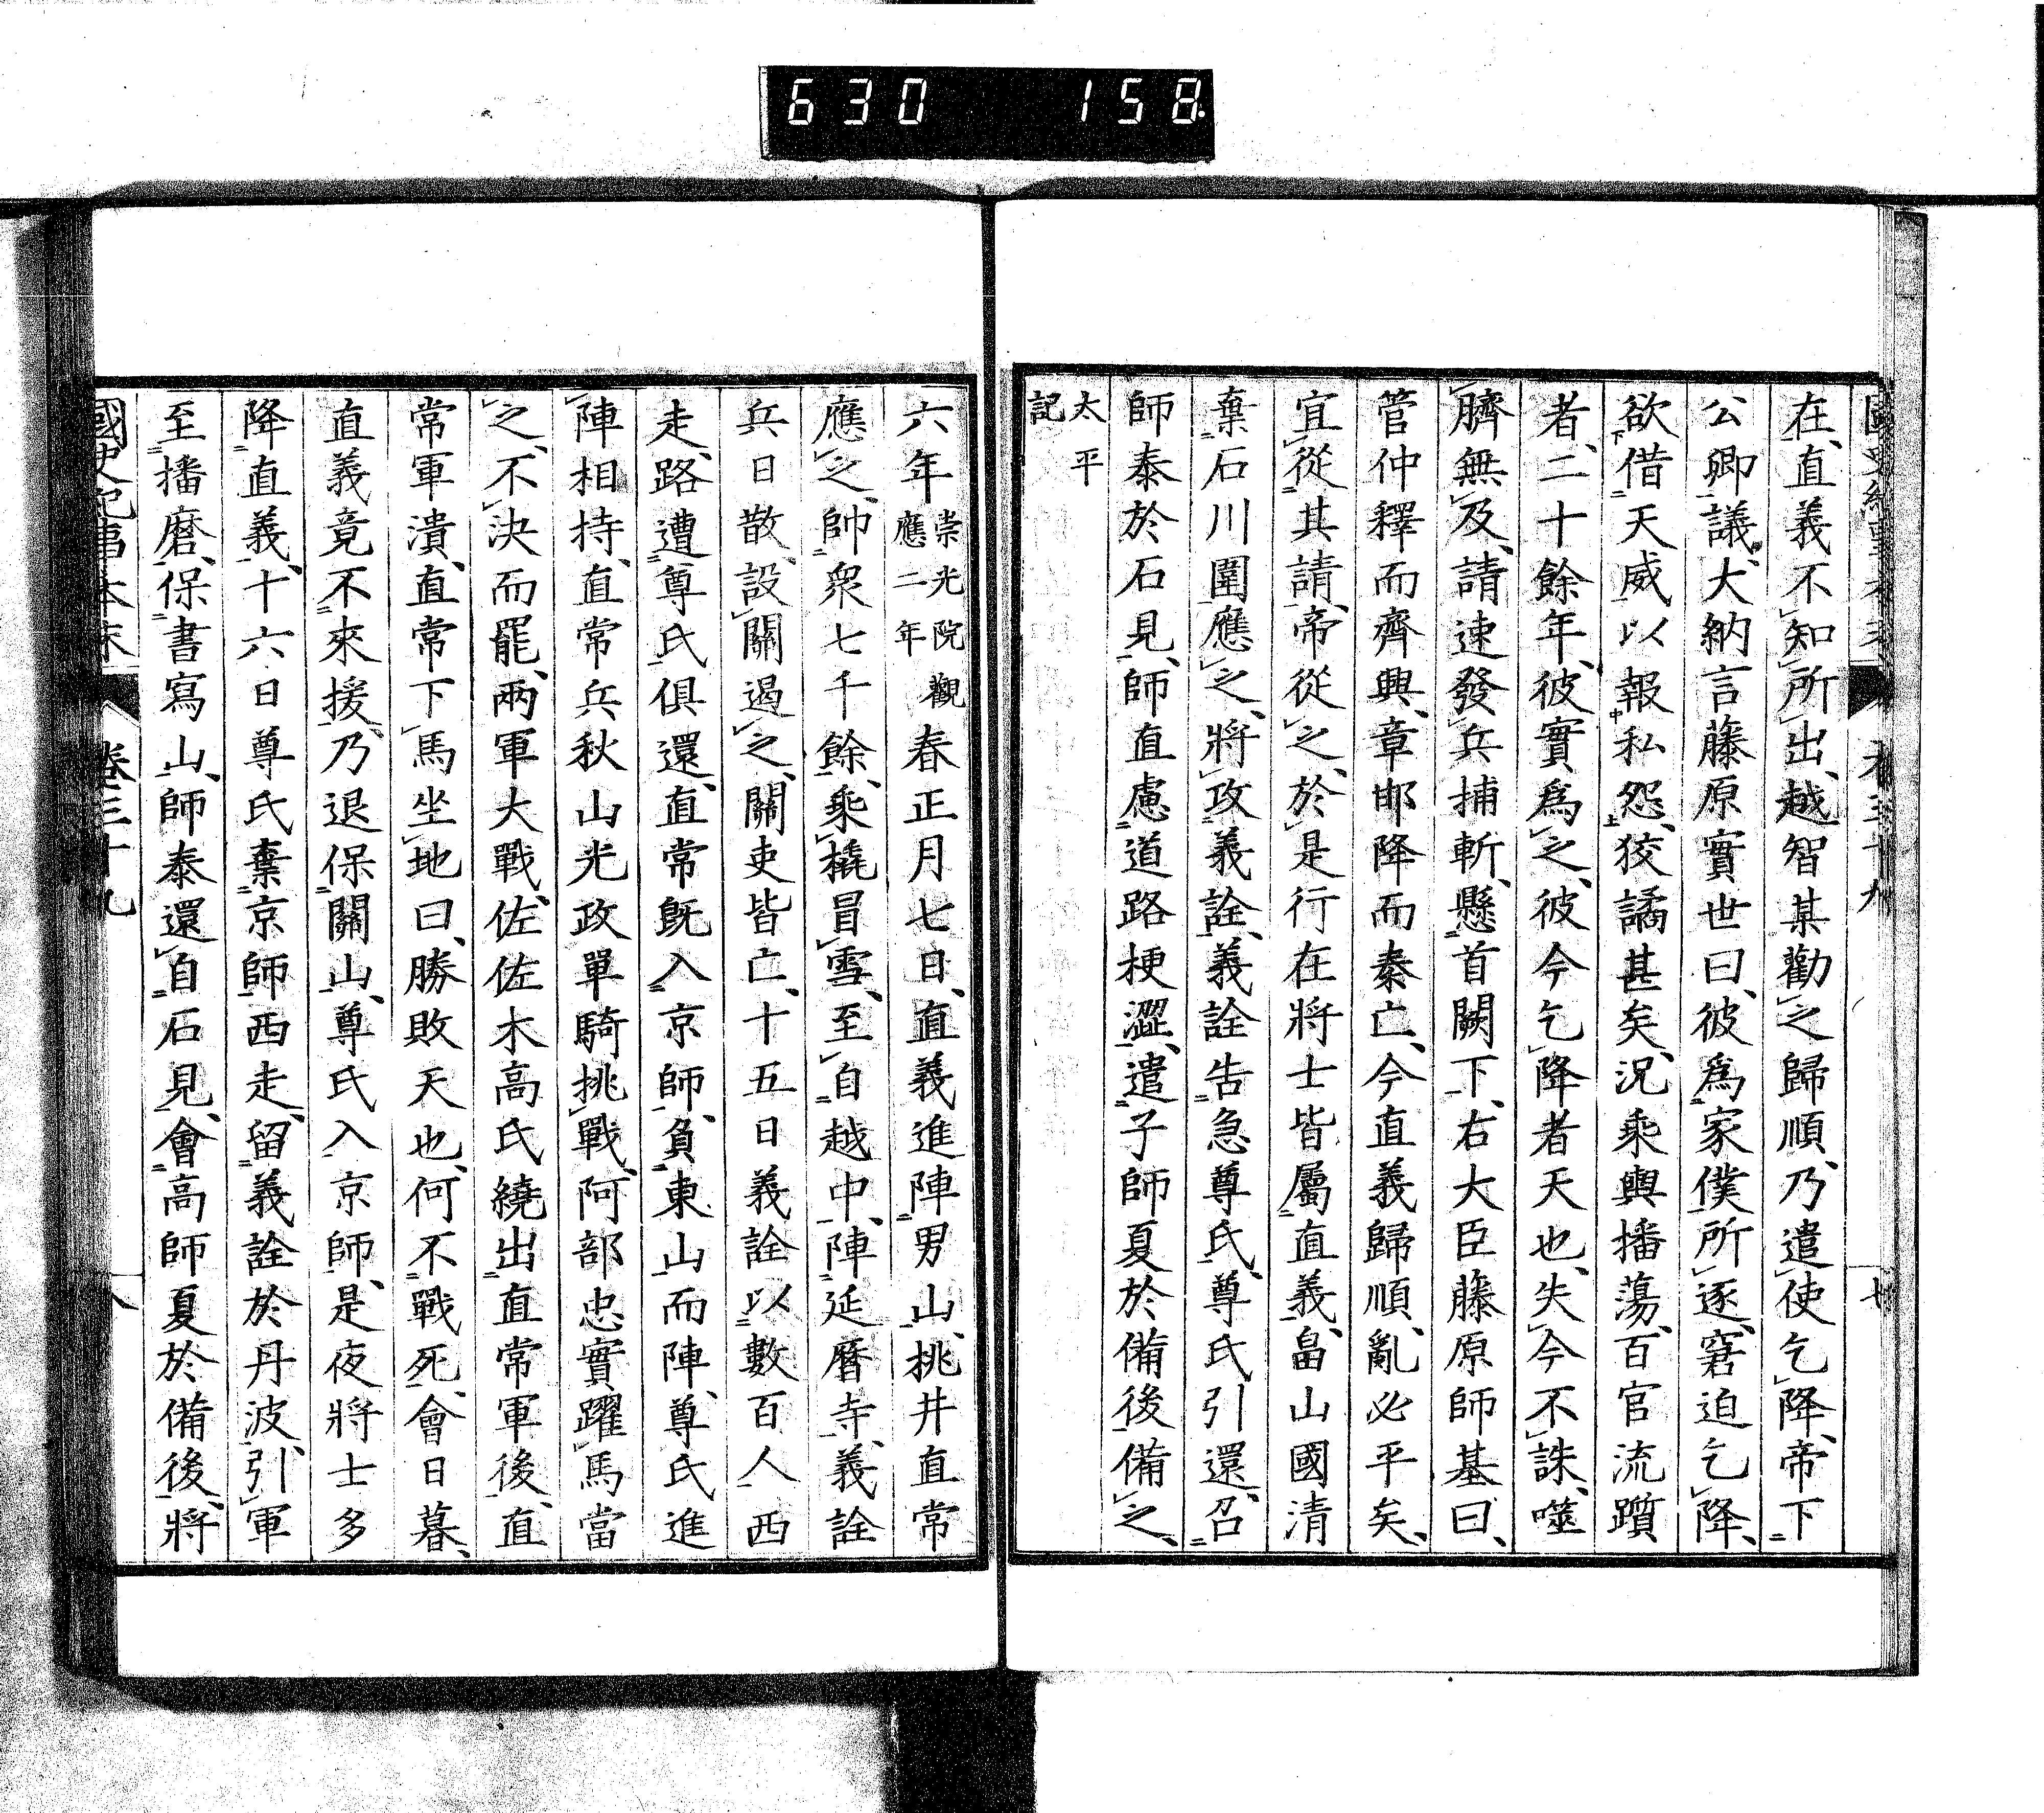 630 158
國史紀事本末 卷三十九 七
在、直義不知所出、越智某勸之歸順、乃遣使乞降、帝下
公卿議、大納言藤原實世曰、彼爲家僕所逐、窘迫乞降、
欲借天威以報私怨、狡譎甚矣、況乘輿播蕩、百官流躓
者、二十餘年、彼實爲之、彼今乞降者天也、失今不誅、噬
臍無及、請速發兵捕斬、懸首闕下、右大臣藤原師基曰、
管仲釋而齊興、章邯降而秦亡、今直義歸順、亂必平矣、
宜從其請、帝從之、於是行在將士皆屬直義、畠山國清
棄石川圍應之、將攻義詮、義詮告急尊氏、尊氏引還、召
師泰於石見、師直慮道路梗澀、遣子師夏於備後備之、
太平記
六年崇光院觀應二年春正月七日、直義進陣男山、桃井直常
應之、帥衆七千餘、乘橇冒雪、至自越中、陣延曆寺、義詮
兵日散、設關遏之、關吏皆亡、十五日義詮以數百人西
走、路遭尊氏俱還、直常既入京師、負東山而陣、尊氏進
陣相持、直常兵秋山光政單騎挑戰、阿部忠實躍馬當
之、不決而罷、兩軍大戰、佐佐木高氏繞出直常軍後、直
常軍潰、直常下馬坐地曰、勝敗天也、何不戰死、會日暮、
直義竟不來援、乃退保關山、尊氏入京師、是夜將士多
降直義、十六日尊氏棄京師西走、留義詮於丹波、引軍
至播磨、保書寫山、師泰還自石見、會高師夏於備後、將
國史紀事本末 卷三十九 八